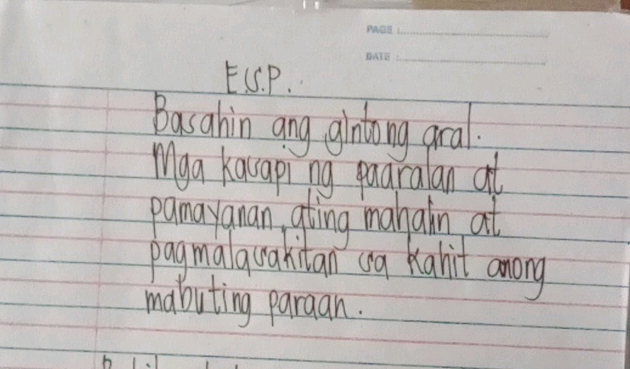 PAGE
DATE
E.S.P.
Basahin ang gintong aral.
Mga kasapi ng paaralan at
pamayanan, ating mahalin at
pagmalasakitan sa kahit anong
mabuting paraan.